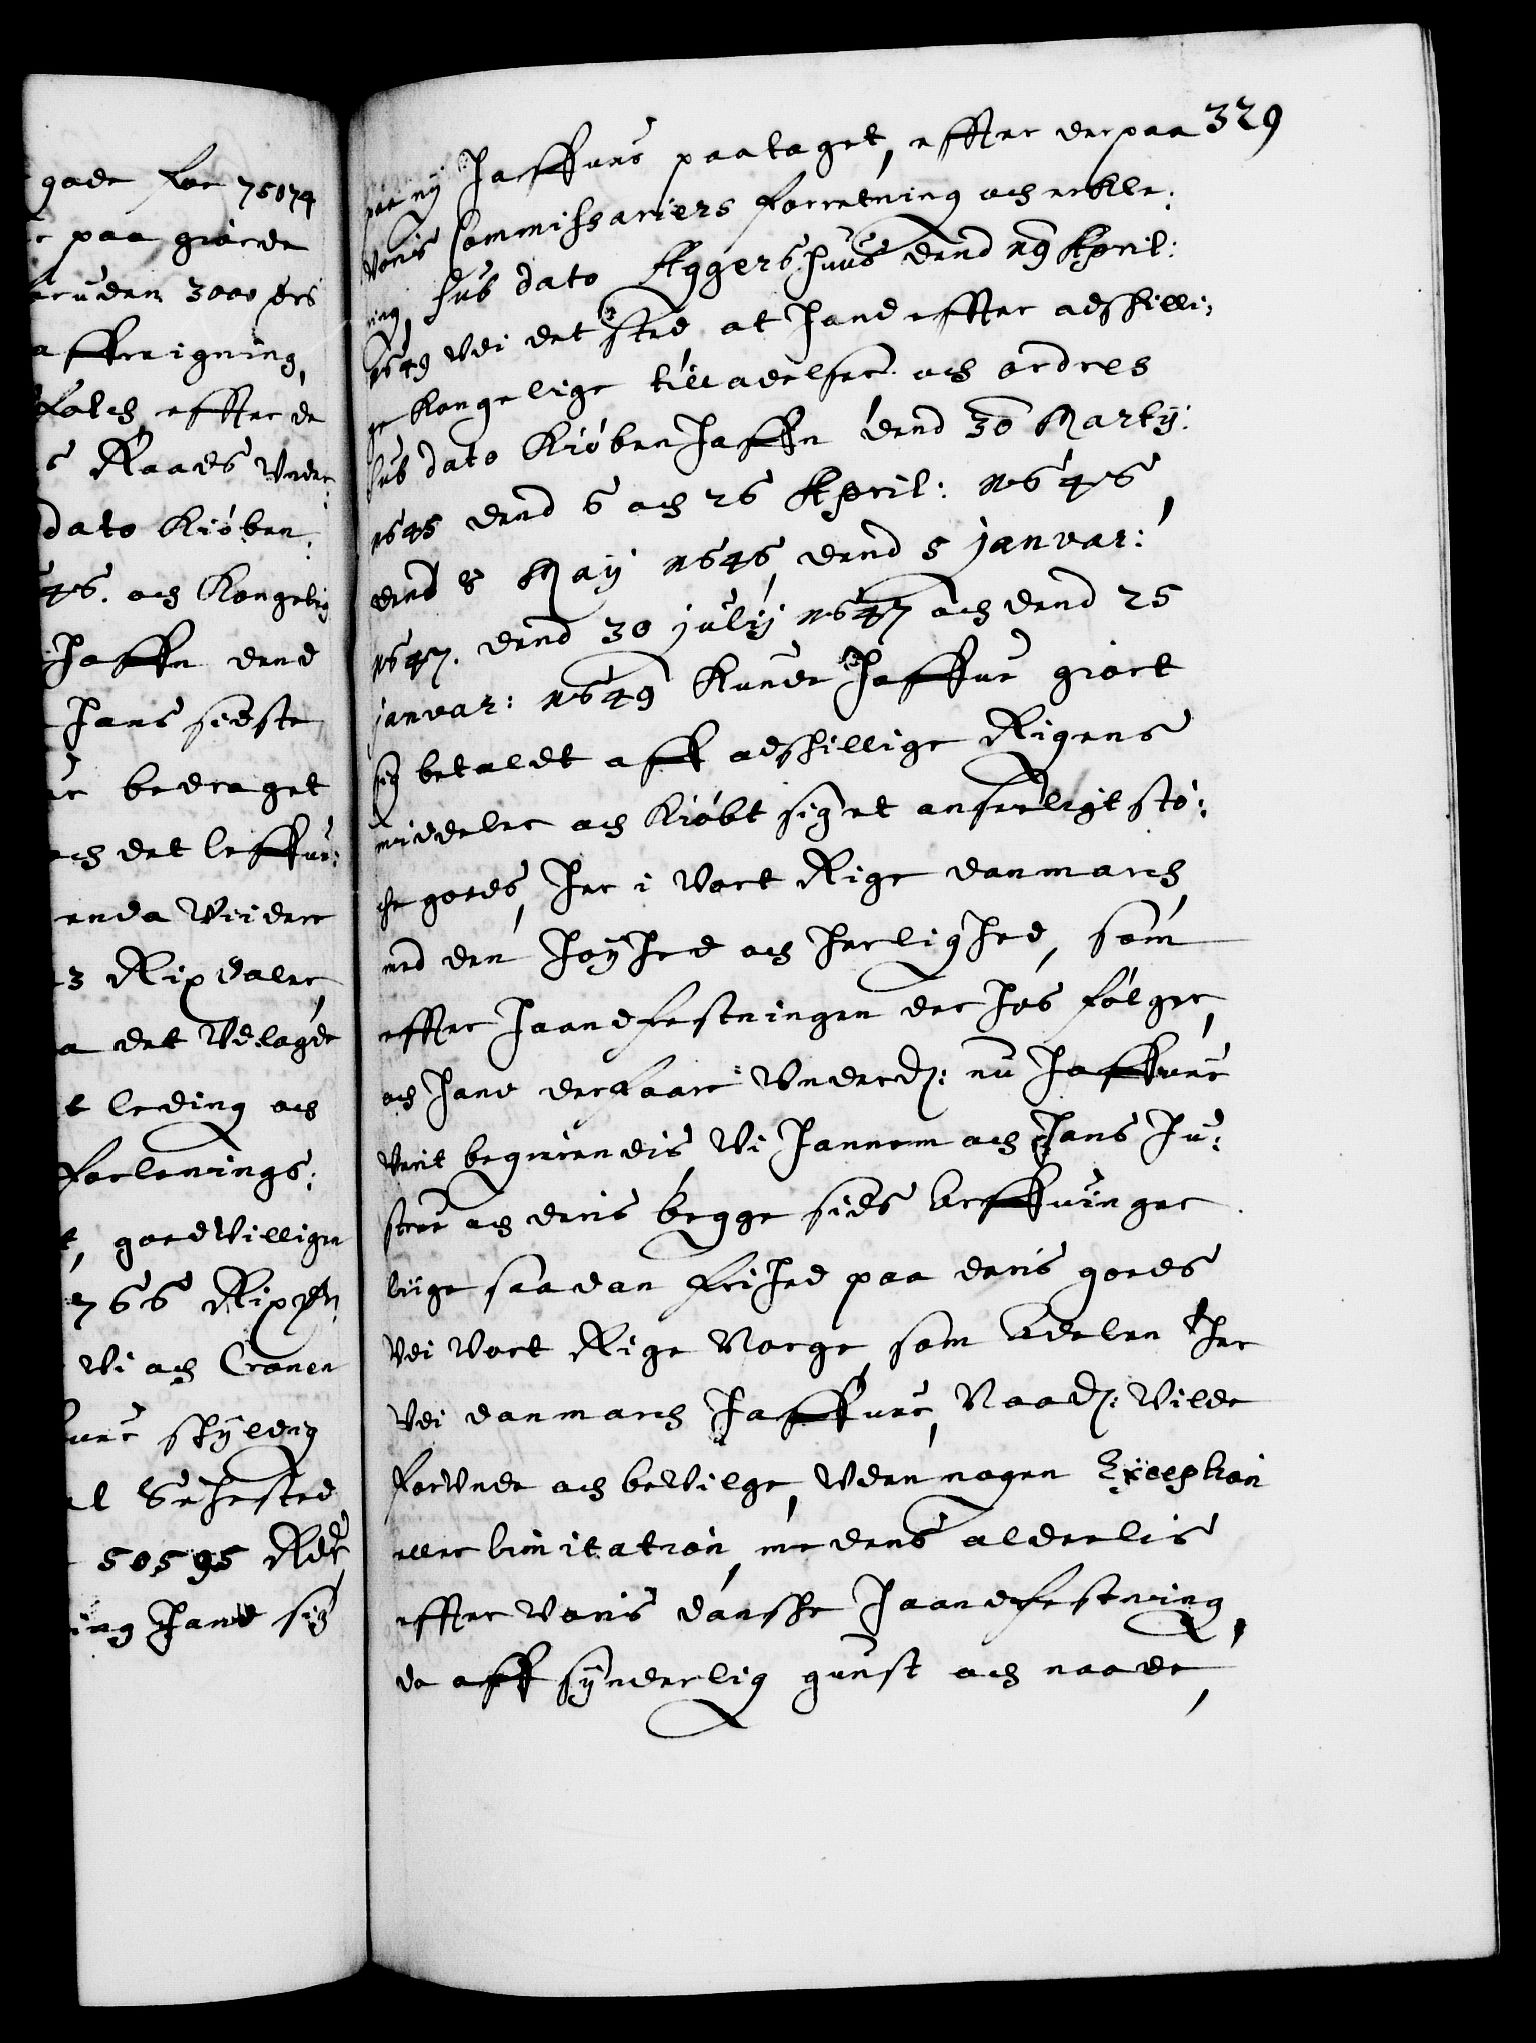 gode for 75074
paa giorde
3000 
affreigning,
folch, effter de
Raads Under
dato Kiøben
46. och Kongelig
haffn dend
hans sidste
bedraget
och det leffver:
enda viidere
3 Rixdaler,
det Udlagde
leding och
forlenings:
t, goedvilligen
766 Rixdr
Vi och Cronen
skÿldig
Sehested
50595 Rdr
hand sig
329
paa nÿ haffvers paataget, effter derpaa
Voris Commissariers forretning och erkle:
ring, sub dato Aggershuus dend 19 April:
1649 Udi det sted, at hand effter adskilli:
ge Kongelige tilladelser och ordres
sub dato Kiøbenhaffn dend 30 Martij:
1645 dend 6 och 26 April: 1646,
dend 8 Maij 1646, dend 5 januar:
1647. dend 30 julij 1647 och dend 25
januar: 1649 kunde haffve giort
sig betaldt aff adskillige Rigens
middeler och kiøbt sig et anseeligt stö:
che goeds, her i Vort Rige danmarch,
med den höÿhed och herlighed, som
effter haandfestningen der hos følger,
och hand derfaare Underd: nu haffver
Verit begierendis, Vi hannem och hans Hu:
strue och deris begge sids Arffvinger
liige saadan frihed paa deris goeds
Udi Vort Rige Norge, som Adelen her
Udi danmarch haffver, Naad: Vilde
forUnde och beVilge, Uden nogen Exception
eller limitation, medens alderlis
effter Voris danske haandfestning,
da aff sÿnderlig gunst och naade,